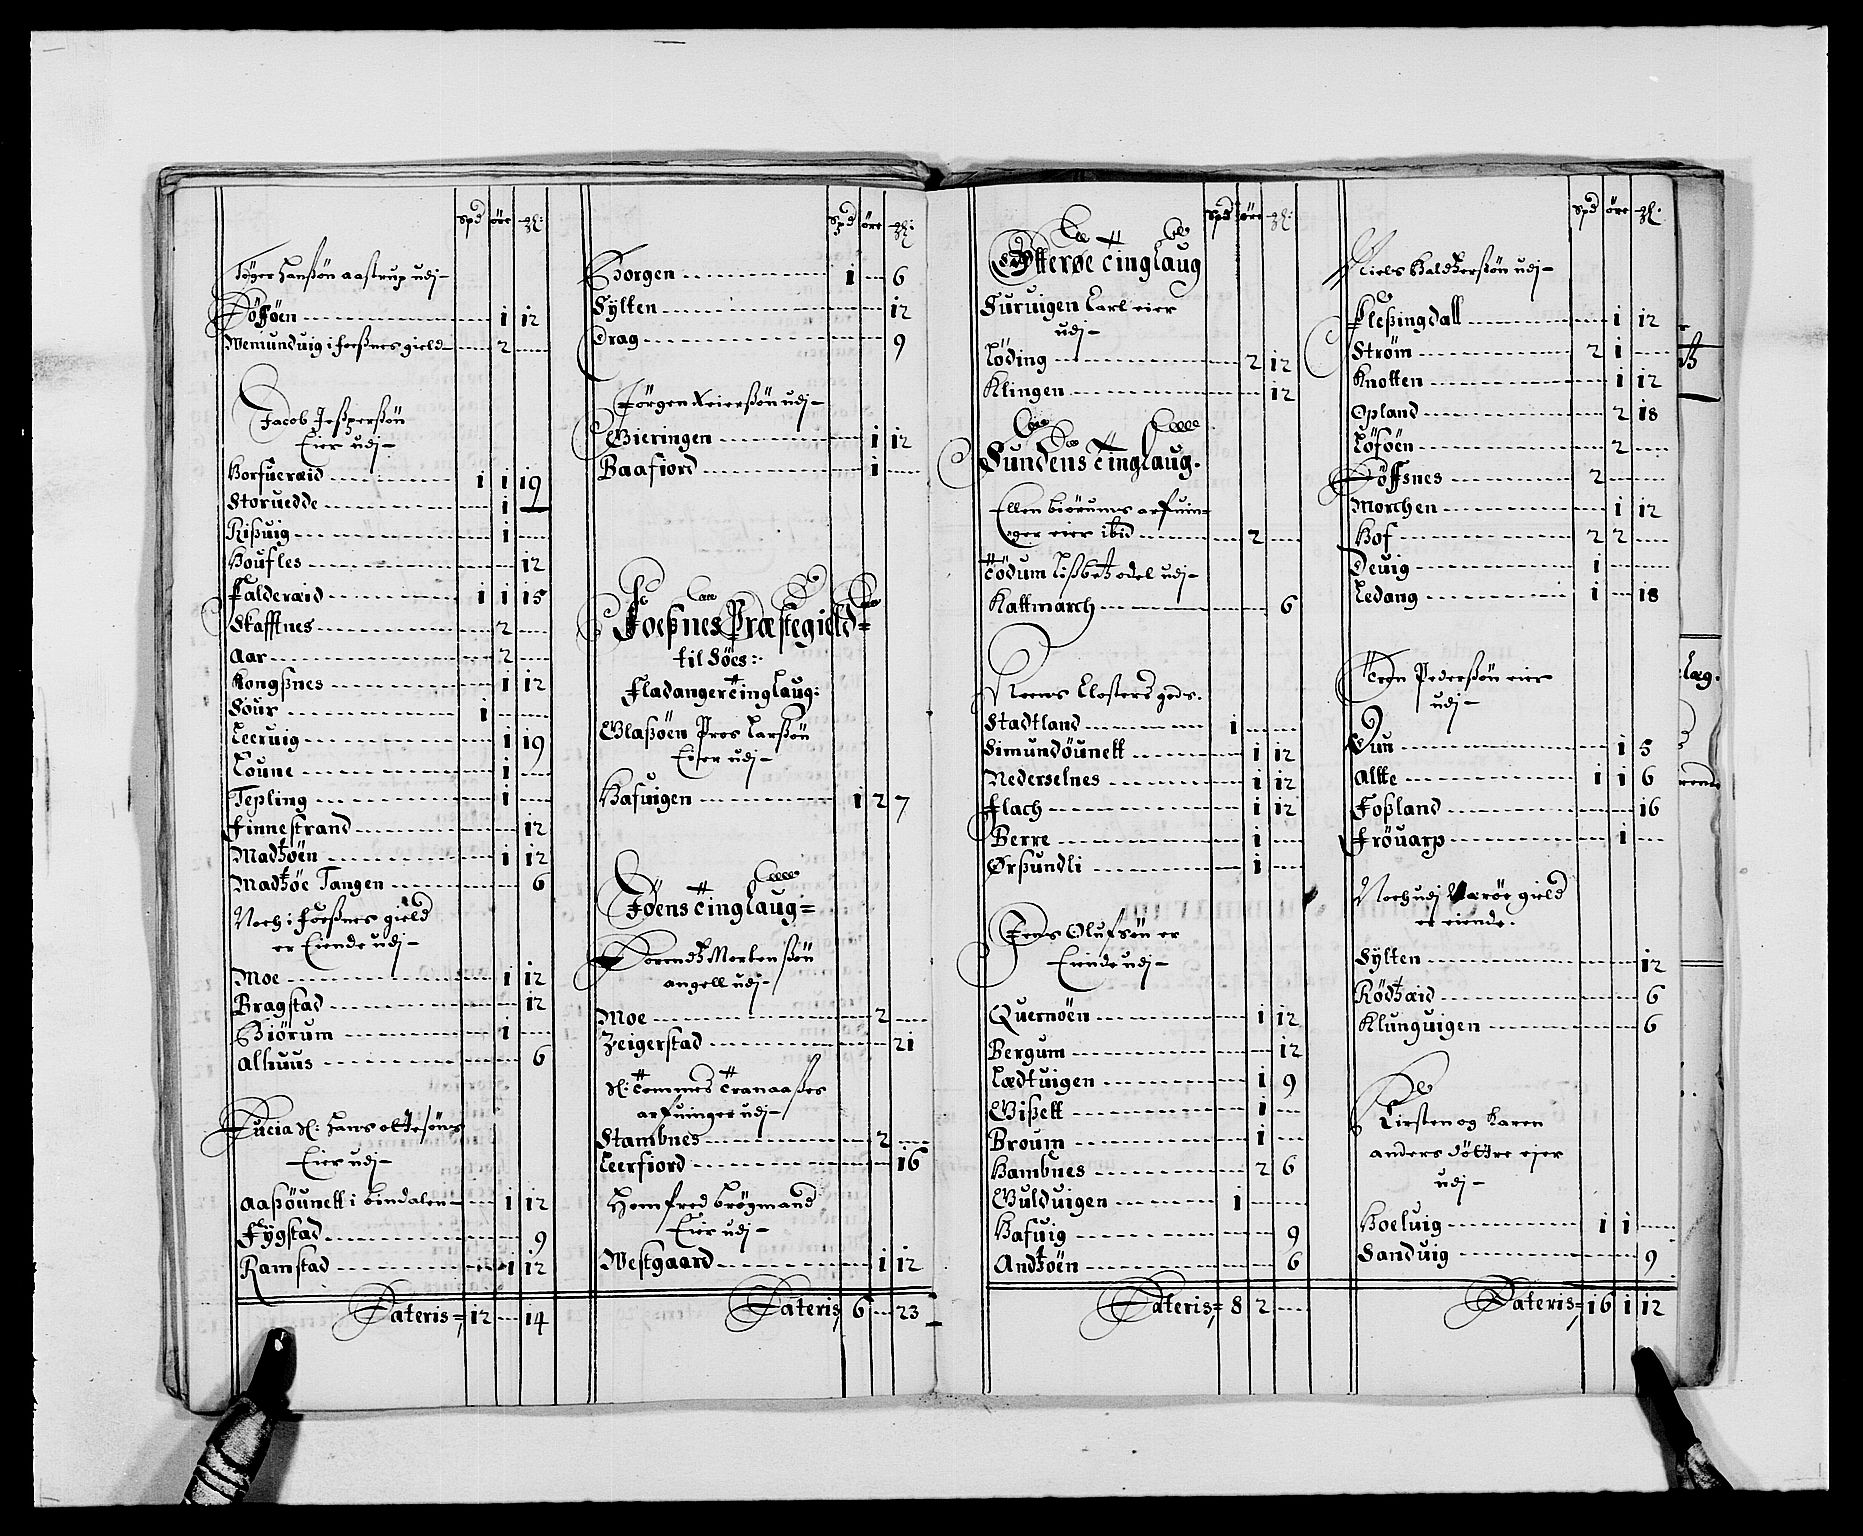 Spd öre gl:
Töger Hanßön aastrup udj
Döfföen 1 12
Wemunduig i foeßnes gield 2
Jacob Jeßperßön
Eier udj
Horfueræid 1 1 19
Storuedde 1
Rißuig 1
Houfles 12
Falderæid 1 1 15
Skafftnes 2
Aar 2
Kongßnes 1 12
Sour 1
Leeruig 1 19
Loune 1
Tepling 1
Finnestrand 12
Madtzöen 1 12
Madtzöe Tangen 6
Noch i foeßnes gield
er Eiende udj
Moe 1 12
Bragstad 12
Biörum 1
Alhuus 6
Lucia Sl: Hans ottesöns
Eier udj
Aaßöunett i bindalen 1 12
Fygstad 9
Ramstad 1 12
Lateris 12 14
Spd öre gl:
Borgen 1 6
Sylten 12
Drag 9
Jörgen Reierßön udj
Bieringen 1 12
Baafiord 1
Foeßnes Præstegield
til Söes:
Fladanger tinglaug:
Glaßöen Pros Larßön
Eier udj
Hafuigen 1 2 7
Föens tinglaug
Lorendtz Mortenßön
angell udj
Moe 2
Zeigerstad 21
Sl: Tommes Tranaaßes
arfuinger udj
Stambnes 2
Leerfiord 16
Homfred brögmand
Eier udj
Westgaard 1 12
Lateris 6 23
Spd öre gl:
Otterøe tinglaug
Suruigen Carl eier
udj
Löding 2 12
Klingen 12
Sundens tinglaug.
Ellen biörums arfuin
ger eier ibid 2
Tödum Lißbetz odel udj
Kattmarch 6
Reens Closters gods.
Stadtland 1
Simundöunett 1 12
Nederselnes 1 12
Flach 1 12
Berre 1
Ørßundli 1
Jens Olufsön er
Eiende udj
Quernöen 1 12
Bergum 12
Lædtuigen 1 9
Bißett 1
Broum 1
Hambnes 2 6
Gulduigen 1
Hafuig 9
Andtzöen 6
Lateris 8 2
Spd öre gl:
Niels Baldtzerßön udj
Fleßingdall 1 12
Ström 2 1
Knotten 1 12
Opland 2 18
Löföen 2
Döffsnes 2
Morchen 1 12
Hof 2 2
Deuig 1
Ledang 1 18
Tron Pederßön eier
udj
Duun 1 5
Altte 1 1 6
Foßland 16
Fröuarp 1
Noch udj Nærøe gield
er eiende.
Sylten 12
Rödtzæid 6
Klunguigen 6
Kirsten og Karen
anders döttre ejer
udj
Hoeluig 1 1
Sanduig 9
Lateris 16 1 12